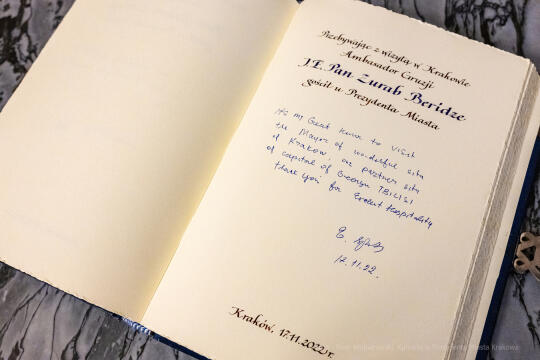 Przebywając z wizytą w Krakowie
Ambasador Gruzji
J.E. Pan Zurab Beridze
gościł u Prezydenta Miasta
It's my Great honor to visit
the Mayor of wonderful city
of Krakow, our partner city
of capital of Georgia TBILISI
thank you for Great Hospitality
17.11.22.
Kraków, 17.11.2022 r.
Prezydenta Miasta Krakowa